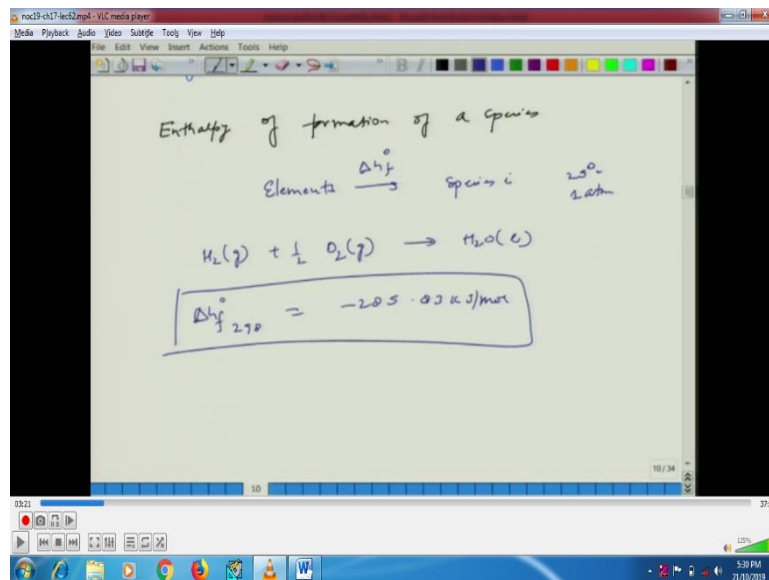 noc19-ch17-lec62.mp4 - VLC media player
Media Playback Audio Video Subtitle Tools View Help
File Edit View Insert Actions Tools Help
Enthalpy of formation of a species
Δh°f
Elements → Species i 25°
1 atm
H₂(g) + ½ O₂(g) → H₂O(l)
Δh°f 298 = -285.83 kJ/mol
10/34
10
03:21
37:
125%
5:30 PM
21/10/2019